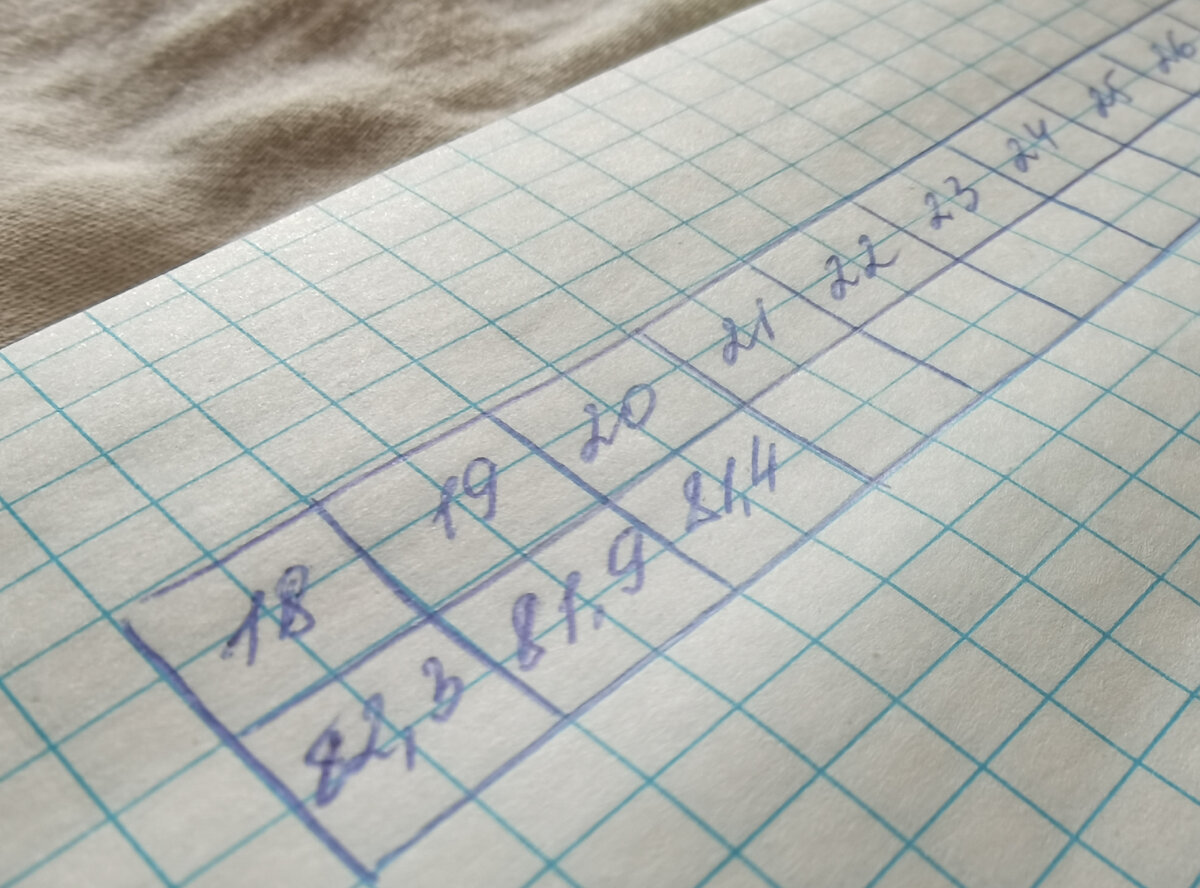 18 19 20 21 22 23 24 25 26
82,3 81,9 81,4